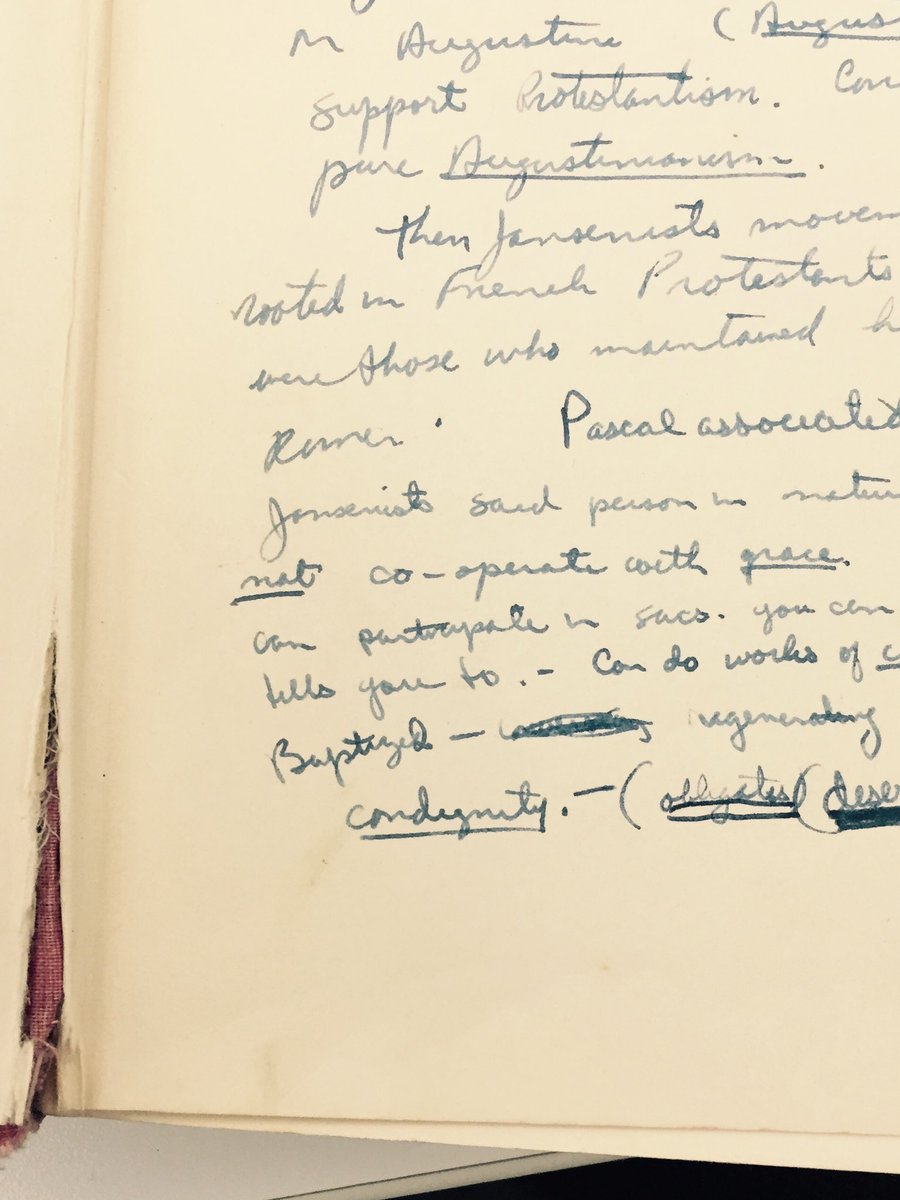 in Augustine (Augus
support Protestantism. Con
pure Augustinianism.
then Jansenists movem
rooted in French Protestants
were those who maintained h
Pascal associated
Jansenists said person in natu
not co-operate with grace.
can participate in sacs. you can
tells you to. - Can do works of c
Baptized — regenerating
condignity. — (obligates) (deser